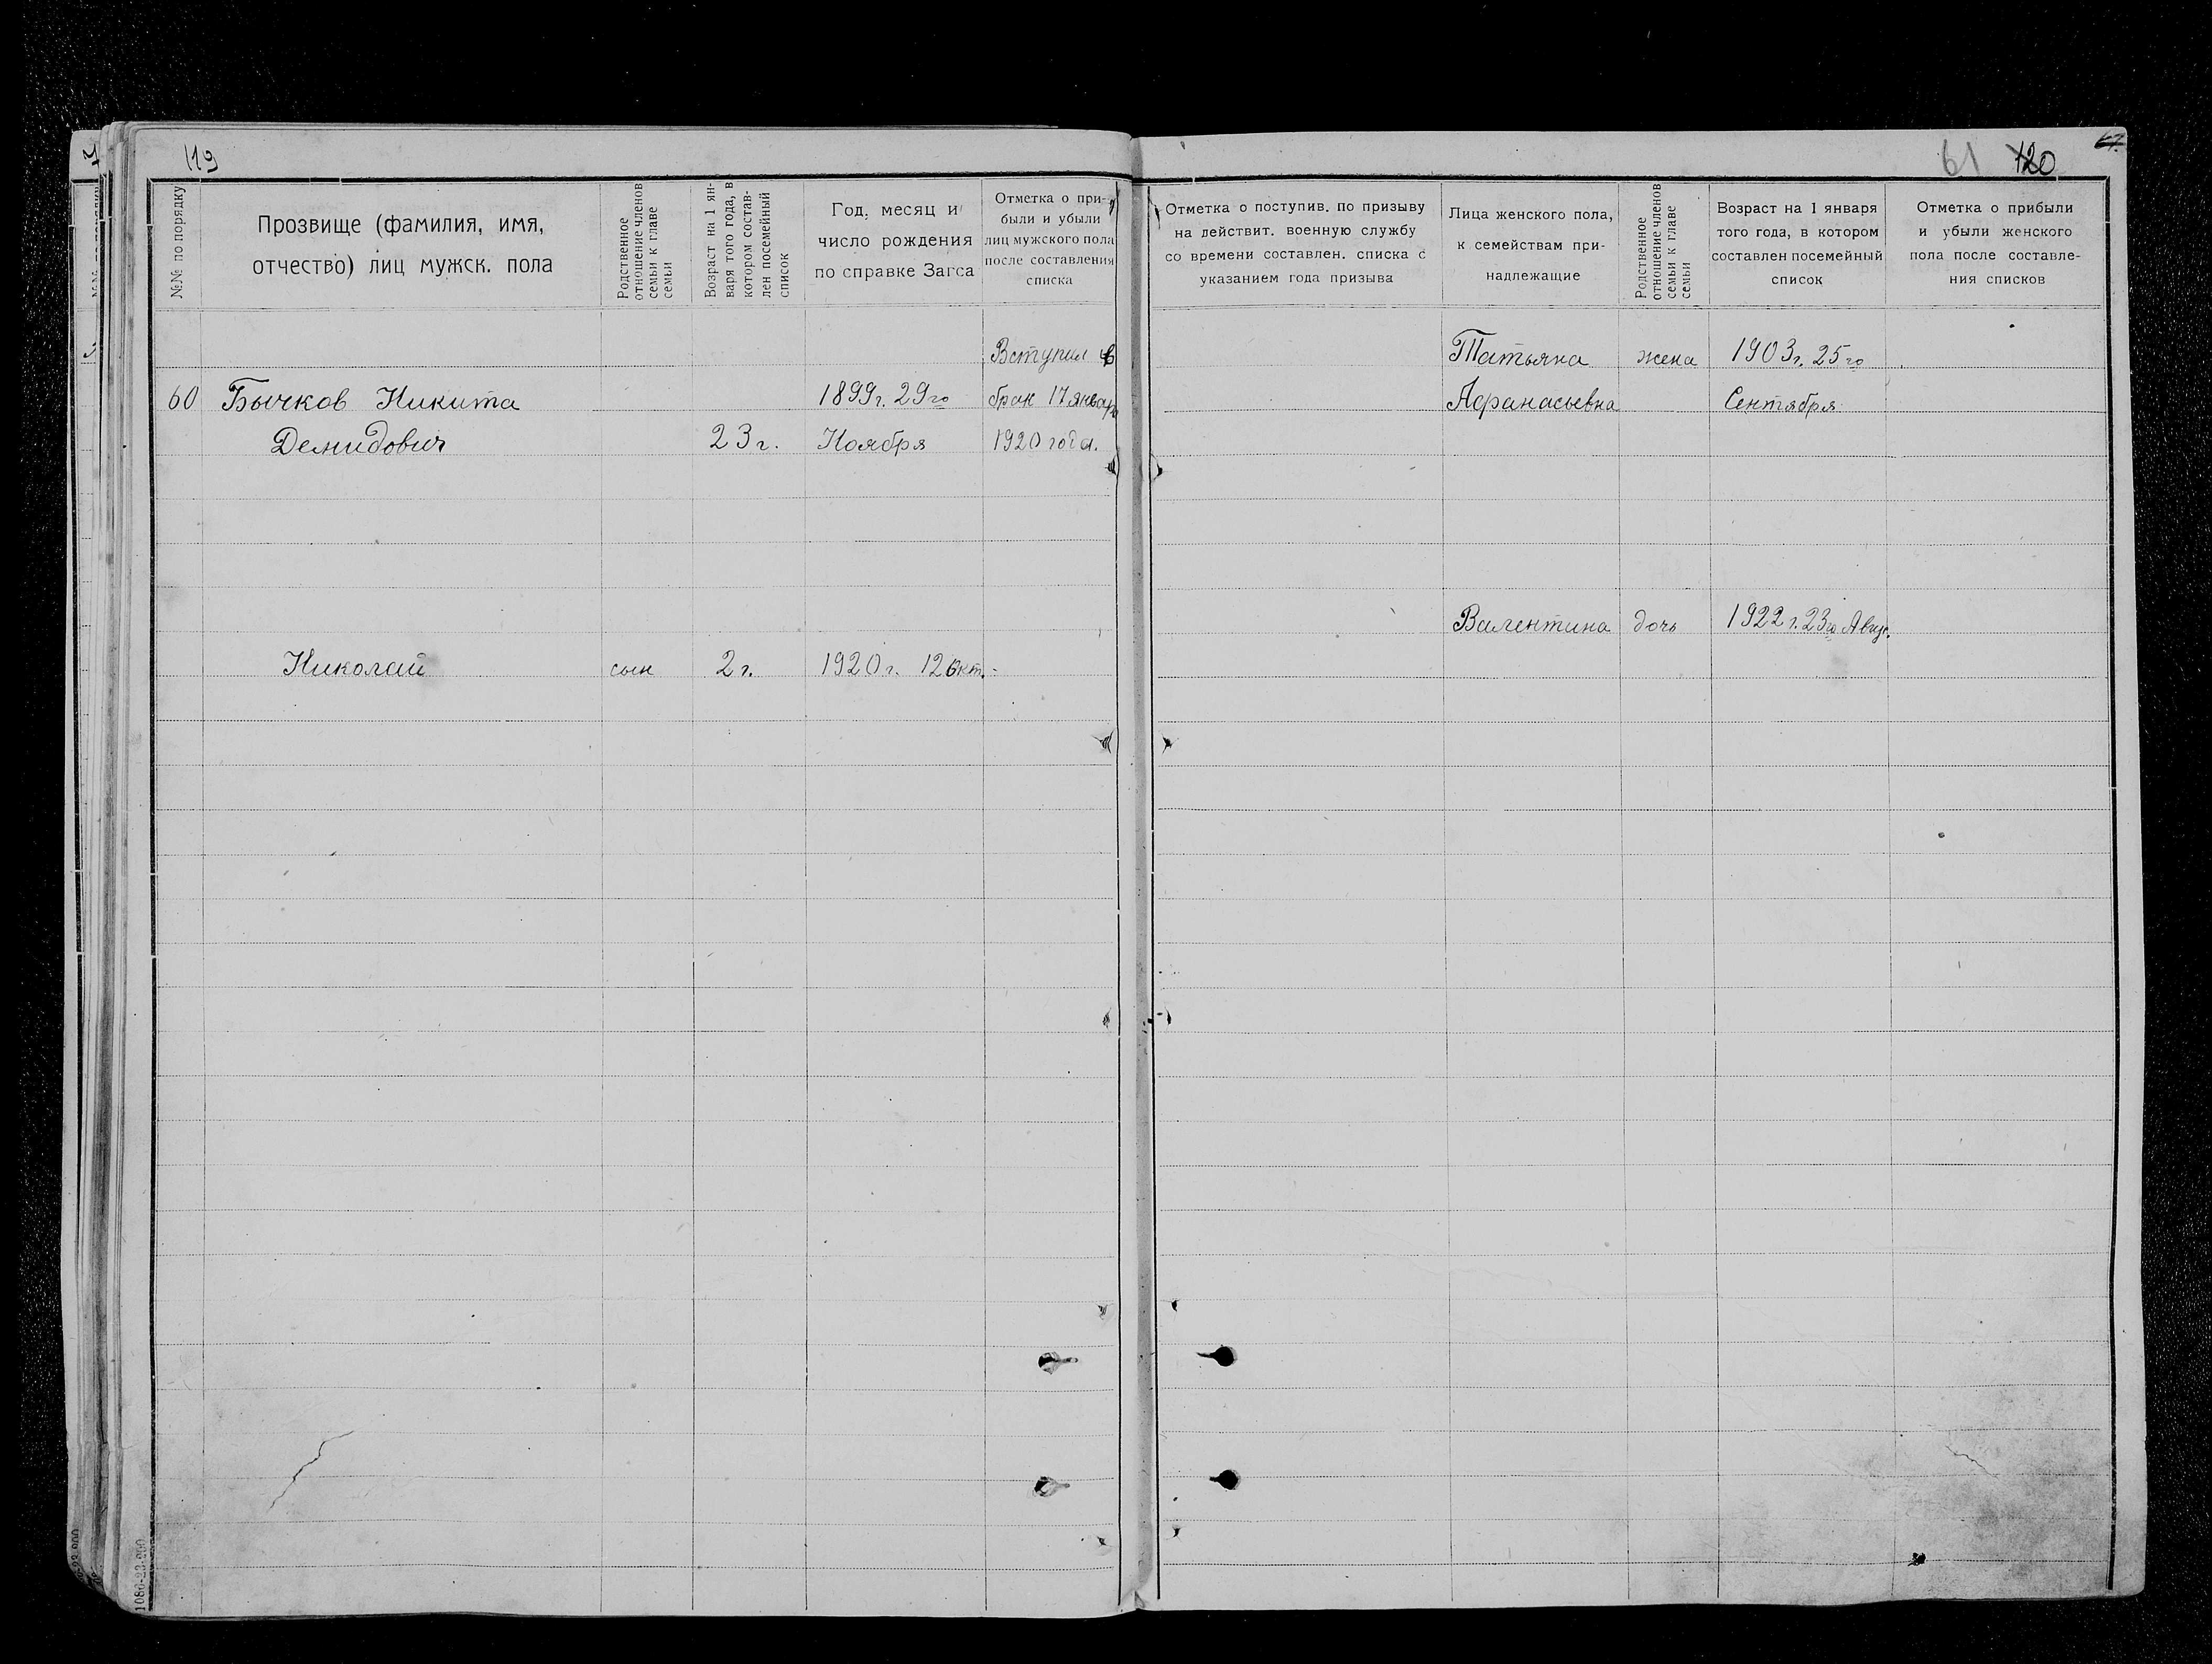 119
№№ по порядку
Прозвище (фамилия, имя,
отчество) лиц мужск. пола
Родственное
отношение членов
семьи к главе
семьи
Возраст на 1 ян-
варя того года, в
котором состав-
лен посемейный
список
Год, месяц и
число рождения
по справке Загса
Отметка о при-
были и убыли
лиц мужского пола
после составления
списка
Вступил в
60 Бычков Никита 1899 г. 29го брак 17 января
Демидович 23 г. Ноября 1920 года.
Николай сын 2 г. 1920 г. 12 окт.
1086-23-900
61 120
Отметка о поступив. по призыву
на действит. военную службу
со времени составлен. списка с
указанием года призыва
Лица женского пола,
к семействам при-
надлежащие
Родственное
отношение членов
семьи к главе
семьи
Возраст на 1 января
того года, в котором
составлен посемейный
список
Отметка о прибыли
и убыли женского
пола после составле-
ния списков
Татьяна жена 1903 г. 25го
Афанасьевна Сентября
Валентина дочь 1922 г. 23го Авгус.